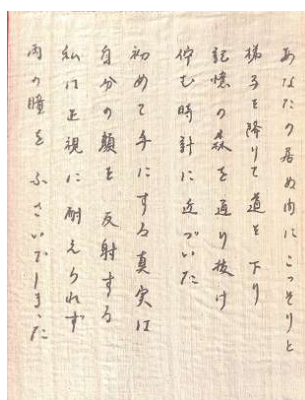 あなたの居ぬ内にこっそりと
梯子を降りて道を下り
記憶の森を通り抜け
佇む時計に近づいた
初めて手にする真実は
自分の顔を反射する
私は正視に耐えられず
両の瞳をふさいでしまった